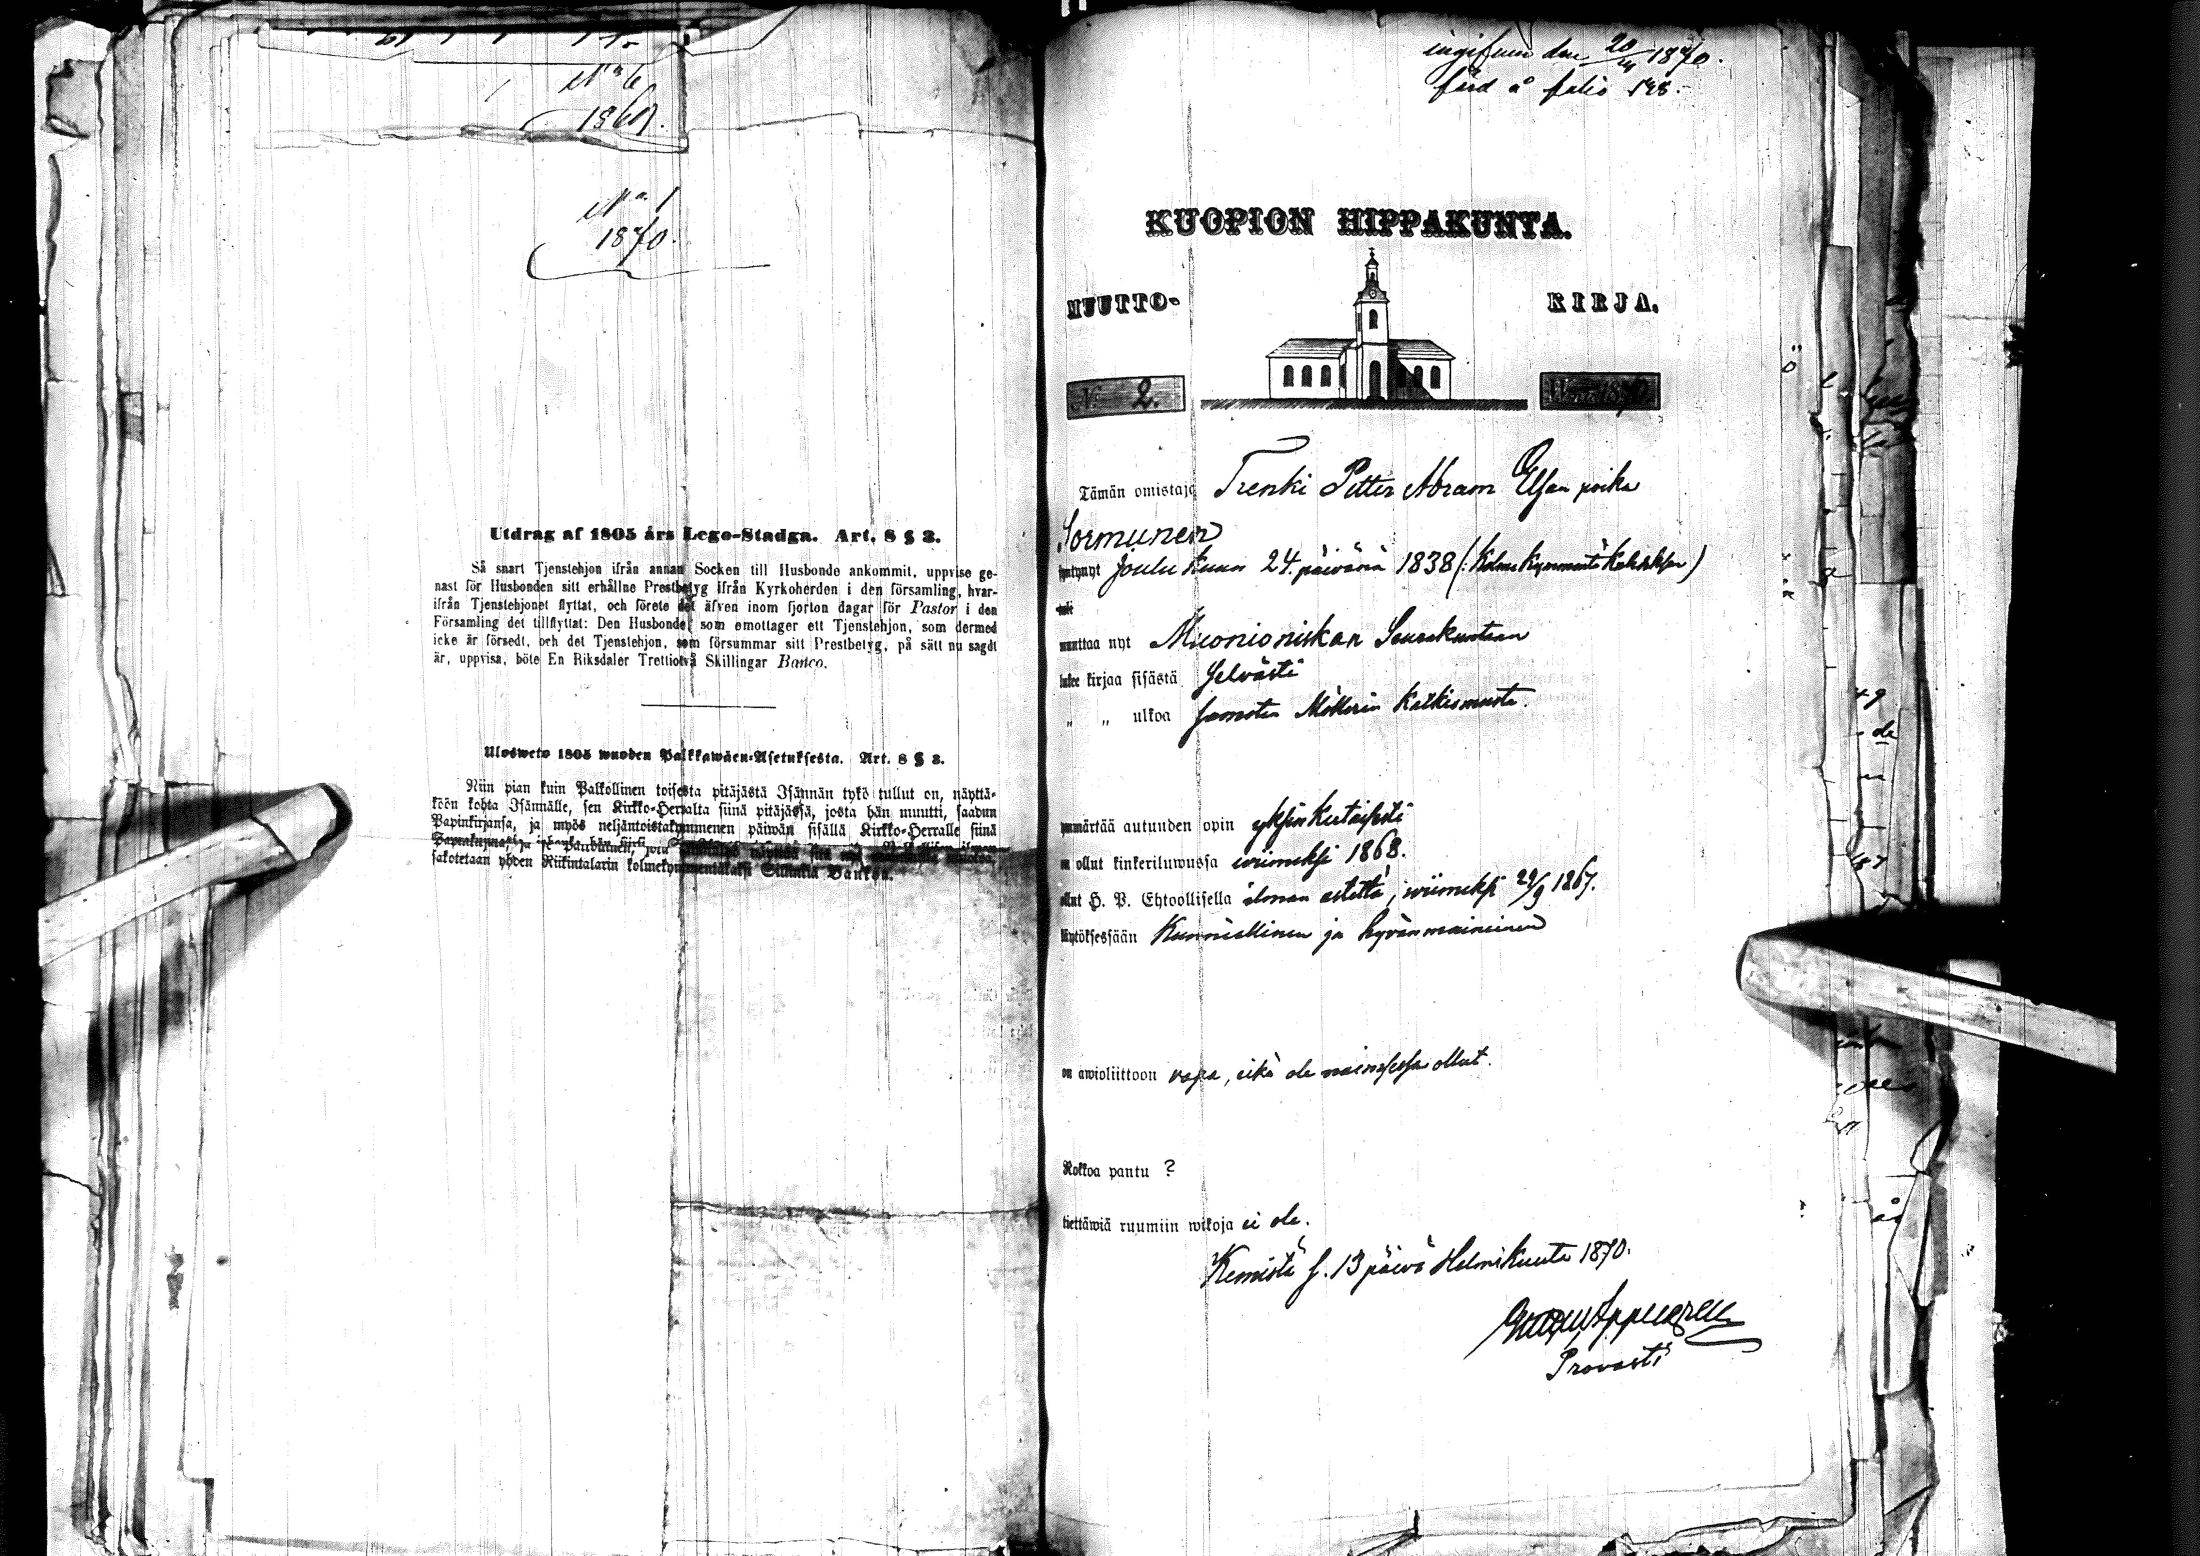 No 6
1869.
No 1
1870.
Utdrag af 1805 års Lego-Stadga. Art. 8 § 3.
Så snart Tjenstehjon ifrån annan Socken till Husbonde ankommit, uppvise ge-
nast för Husbonden sitt erhållne Prestbetyg ifrån Kyrkoherden i den församling, hvar-
ifrån Tjenstehjonet flyttat, och förete det äfven inom fjorton dagar för Pastor i den
Församling det tillflyttat: Den Husbonde, som emottager ett Tjenstehjon, som dermed
icke är försedt, och det Tjenstehjon, som försummar sitt Prestbetyg, på sätt nu sagdt
är, uppvisa, böte En Riksdaler Trettiotvå Skillingar Banco.
Ulosweto 1805 wuoden Palkkawäen-Asetuksesta. Art. 8 § 3.
Niin pian kuin Palkollinen toisesta pitäjästä Isännän tykö tullut on, näyttä-
köön kohta Isännälle, sen Kirkko-Herralta siinä pitäjässä, josta hän muutti, saadun
Papinkirjansa, ja myös neljäntoistakymmenen päiwän sisällä Kirkko-Herralle siinä
sakotetaan yhden Riikintalarin kolmekymmentäkaksi Sillinkiä Bankoa.
den 20 1870.
förd å folio 198.
KUOPION HIPPAKUNTA.
MUUTTO- KIRJA.
N:o 2. W. 1870
Tämän omistaja Trenki Petter Abram poika
Sormunen
syntynyt Joulu Kuun 24. päivänä 1838 (: Kolme Kymmentä Kahdeksan)
muuttaa nyt Muonioniskan Seurakuntaan
lukee kirjaa sisästä Selvästi
" " ulkoa Katkismusta.
ymmärtää autuuden opin yksinkertaisesti
on ollut kinkeriluwussa wiimeksi 1868.
ollut H. P. Ehtoollisella ilman estettä, wiimeksi 29/9 1867.
käytöksessään Kunniallinen ja hyvänmaineinen
on awioliittoon vapa, eikä ole naimisessa ollut.
Rokkoa pantu ?
tiettäwiä ruumiin wikoja ei ole.
Kemistä s. 13 päivä Helmikuuta 1870.
Provasti